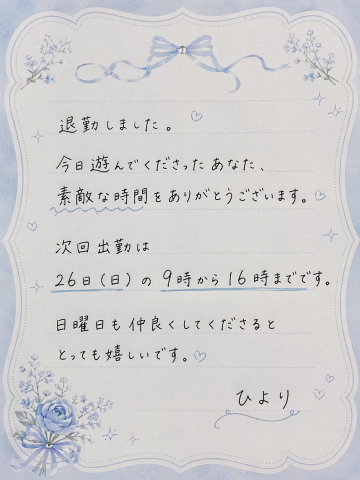 退勤しました。
今日遊んでくださったあなた、
素敵な時間をありがとうございます。
次回出勤は
26日(日)の9時から16時までです。
日曜日も仲良くしてくださると
とっても嬉しいです。
ひより